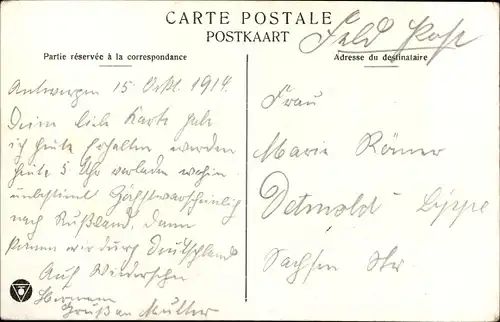 CARTE POSTALE
POSTKAART
Feld Post
Partie réservée à la correspondance
Adresse du destinataire
Antwerpen 15. Okt. 1914.
Deine liebe Karte habe
ich heute erhalten werden
heute 5 Uhr verladen wohin
unbestimt Höchstwarscheinlich
nach Rußland, dann
kamen wir durch Deutschland
Auf Wiedersehn
Hermann
Gruß an Mutter
Frau
Marie Römer
Detmold Lippe
Sachsen Str